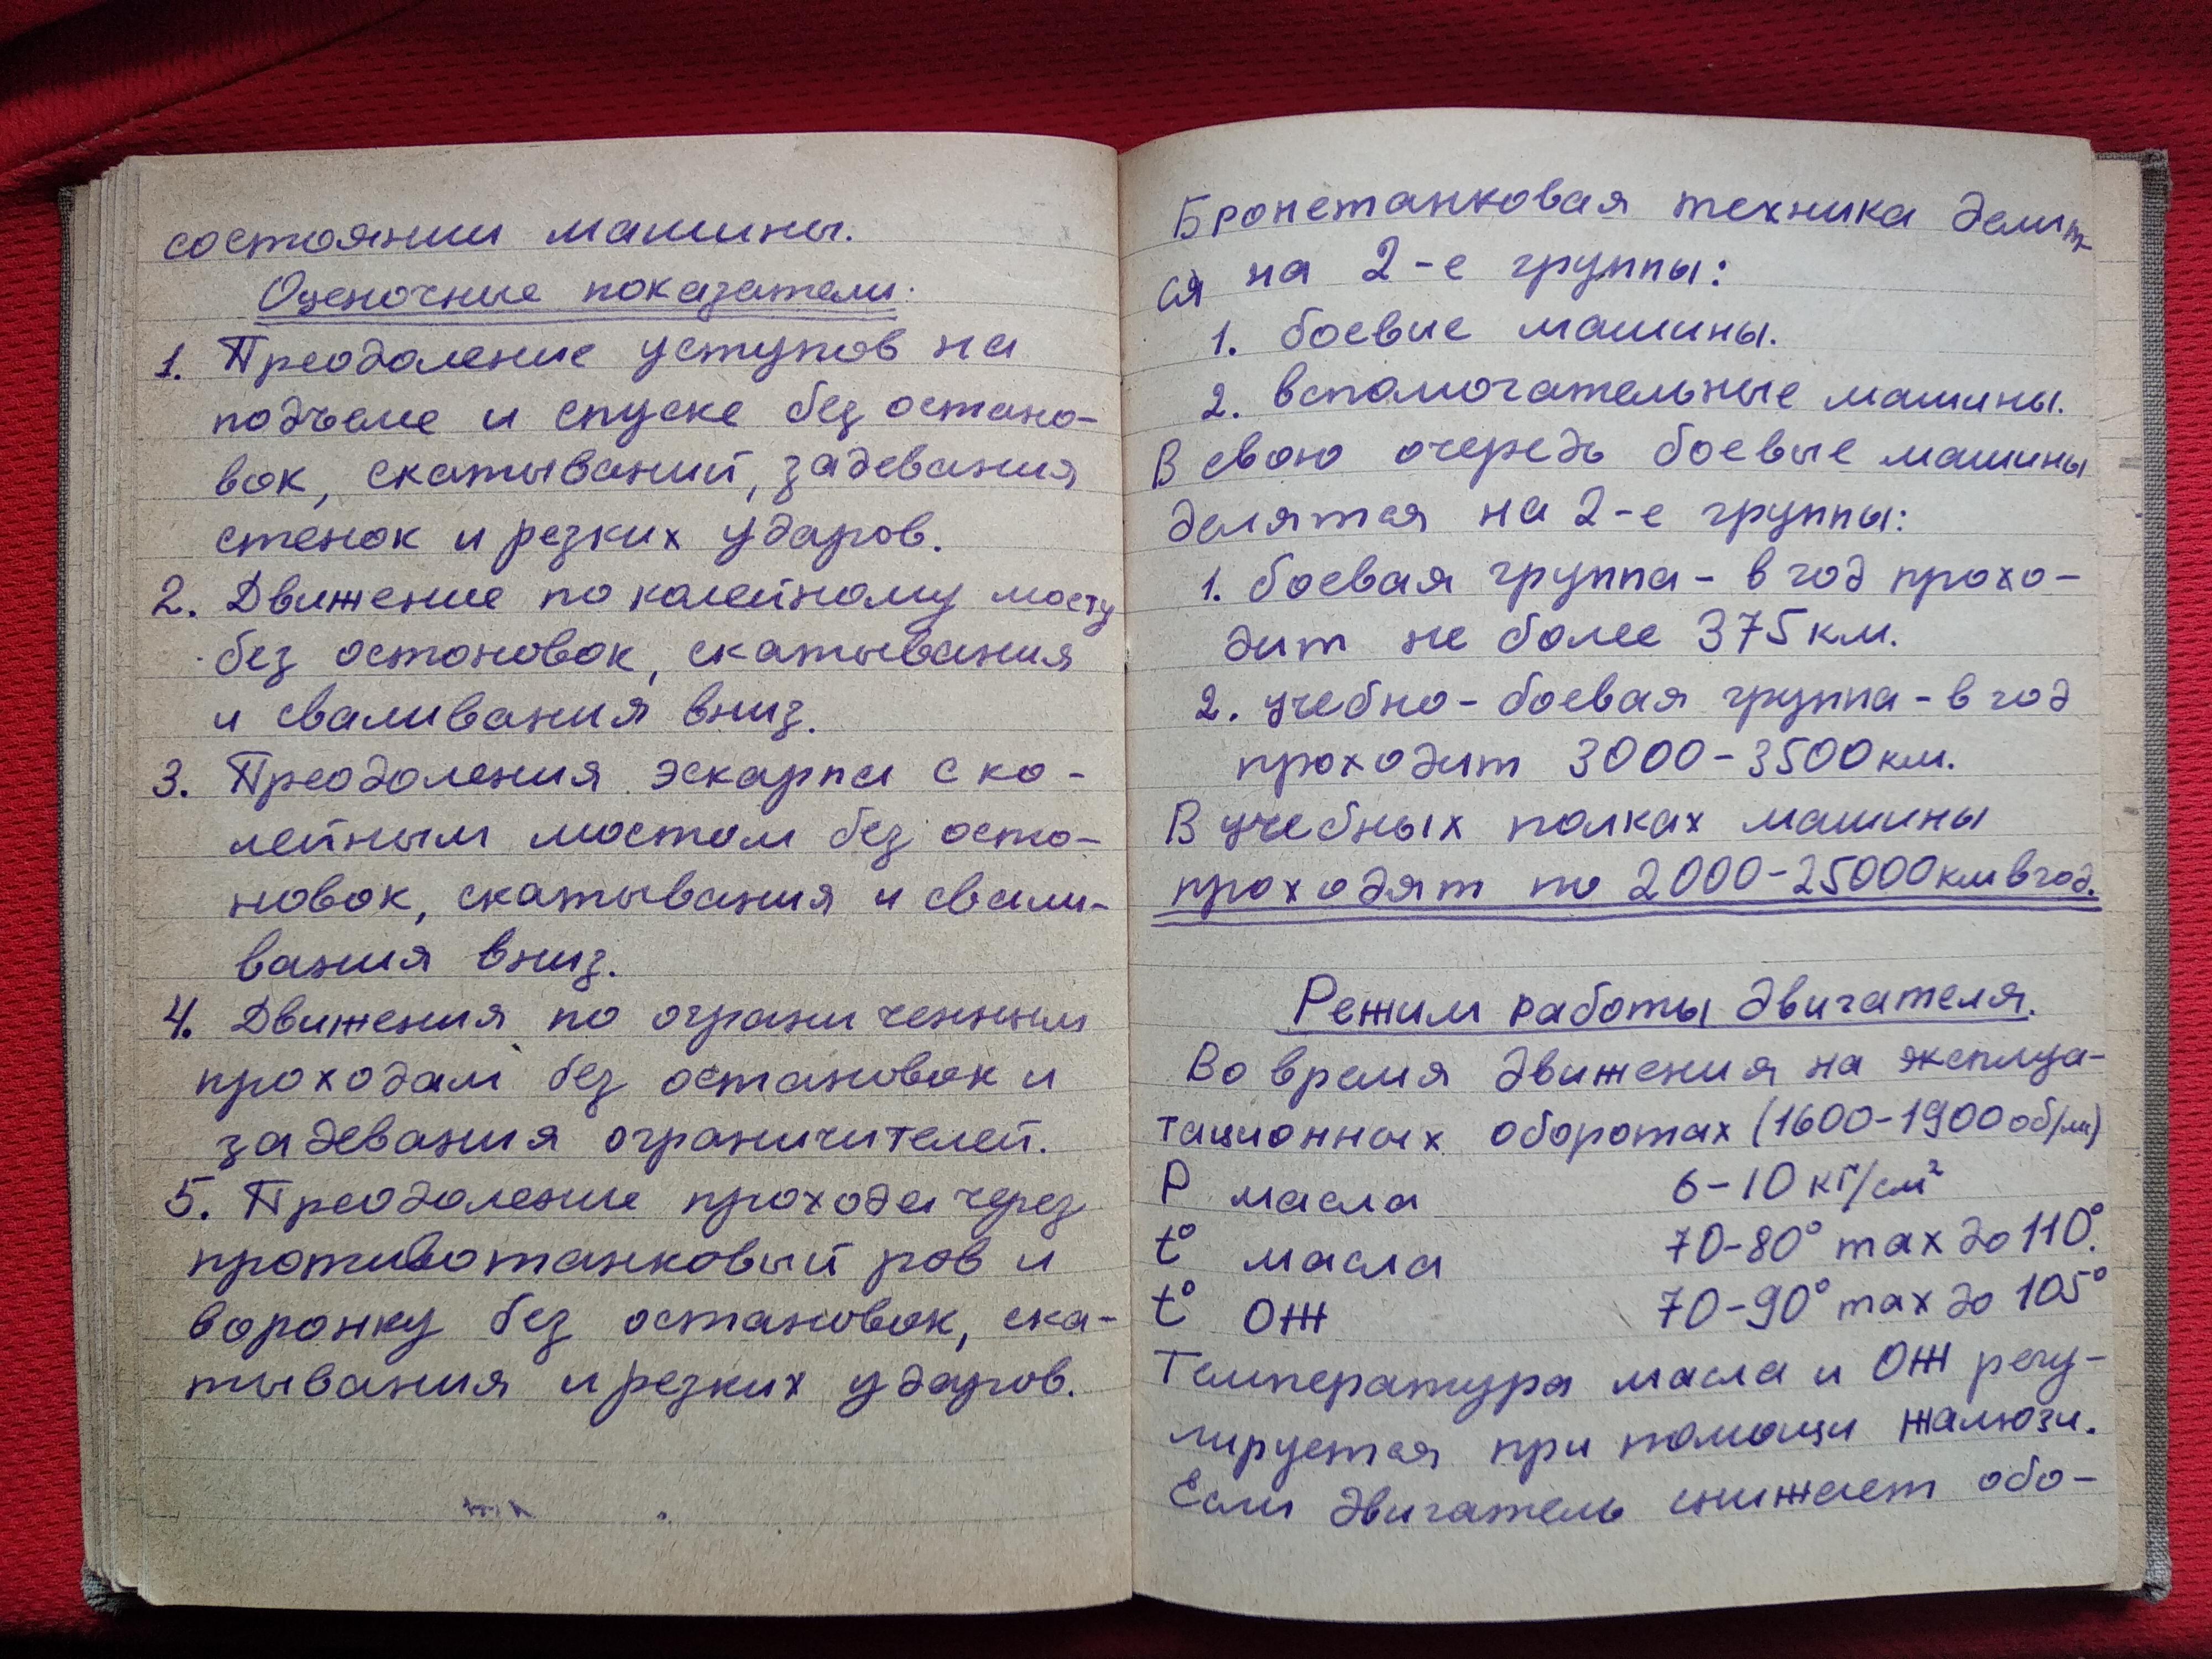 состоянии машины.
Оценочные показатели:
1. Преодоление уступов на
подъеме и спуске без остано-
вок, скатываний, задевания
стенок и резких ударов.
2. Движение по колейному мосту
без остоновок, скатывания
и сваливания вниз.
3. Преодоления эскарпа с ко-
лейным мостом без осто-
новок, скатывания и свали-
вания вниз.
4. Движения по ограниченным
проходам без остановок и
задевания ограничителей.
5. Преодоление прохода через
противотанковый ров и
воронку без остановок, ска-
тывания и резких ударов.
Бронетанковая техника делит-
ся на 2-е группы:
1. боевые машины.
2. вспомогательные машины.
В свою очередь боевые машины
делятся на 2-е группы:
1. боевая группа - в год прохо-
дит не более 375 км.
2. учебно-боевая группа - в год
проходит 3000-3500 км.
В учебных полках машины
проходят по 2000-25000 км в год.
Режим работы двигателя.
Во время движения на эксплуа-
тационных оборотах (1600-1900 об/ми)
P масла 6-10 кг/см²
t° масла 70-80° max до 110°.
t° ОЖ 70-90° max до 105°
Температура масла и ОЖ регу-
лируется при помощи жалюзи.
Если двигатель снижает обо-